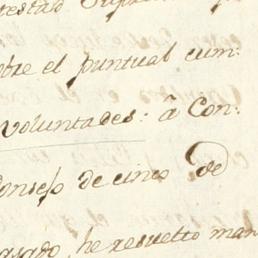 testad Suprem
bre el puntual cum-
voluntades: â Con-
Consejo de cinco de
asado, he resuelto man